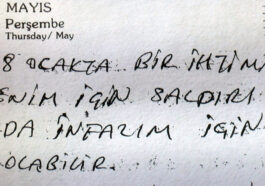 MAYIS
Perşembe
Thursday/ May
8 OCAKTA BİR İHTİMA
ENİM İÇİN SALDIRI
DA İNFAZIM İÇİN
OLABİLİR.